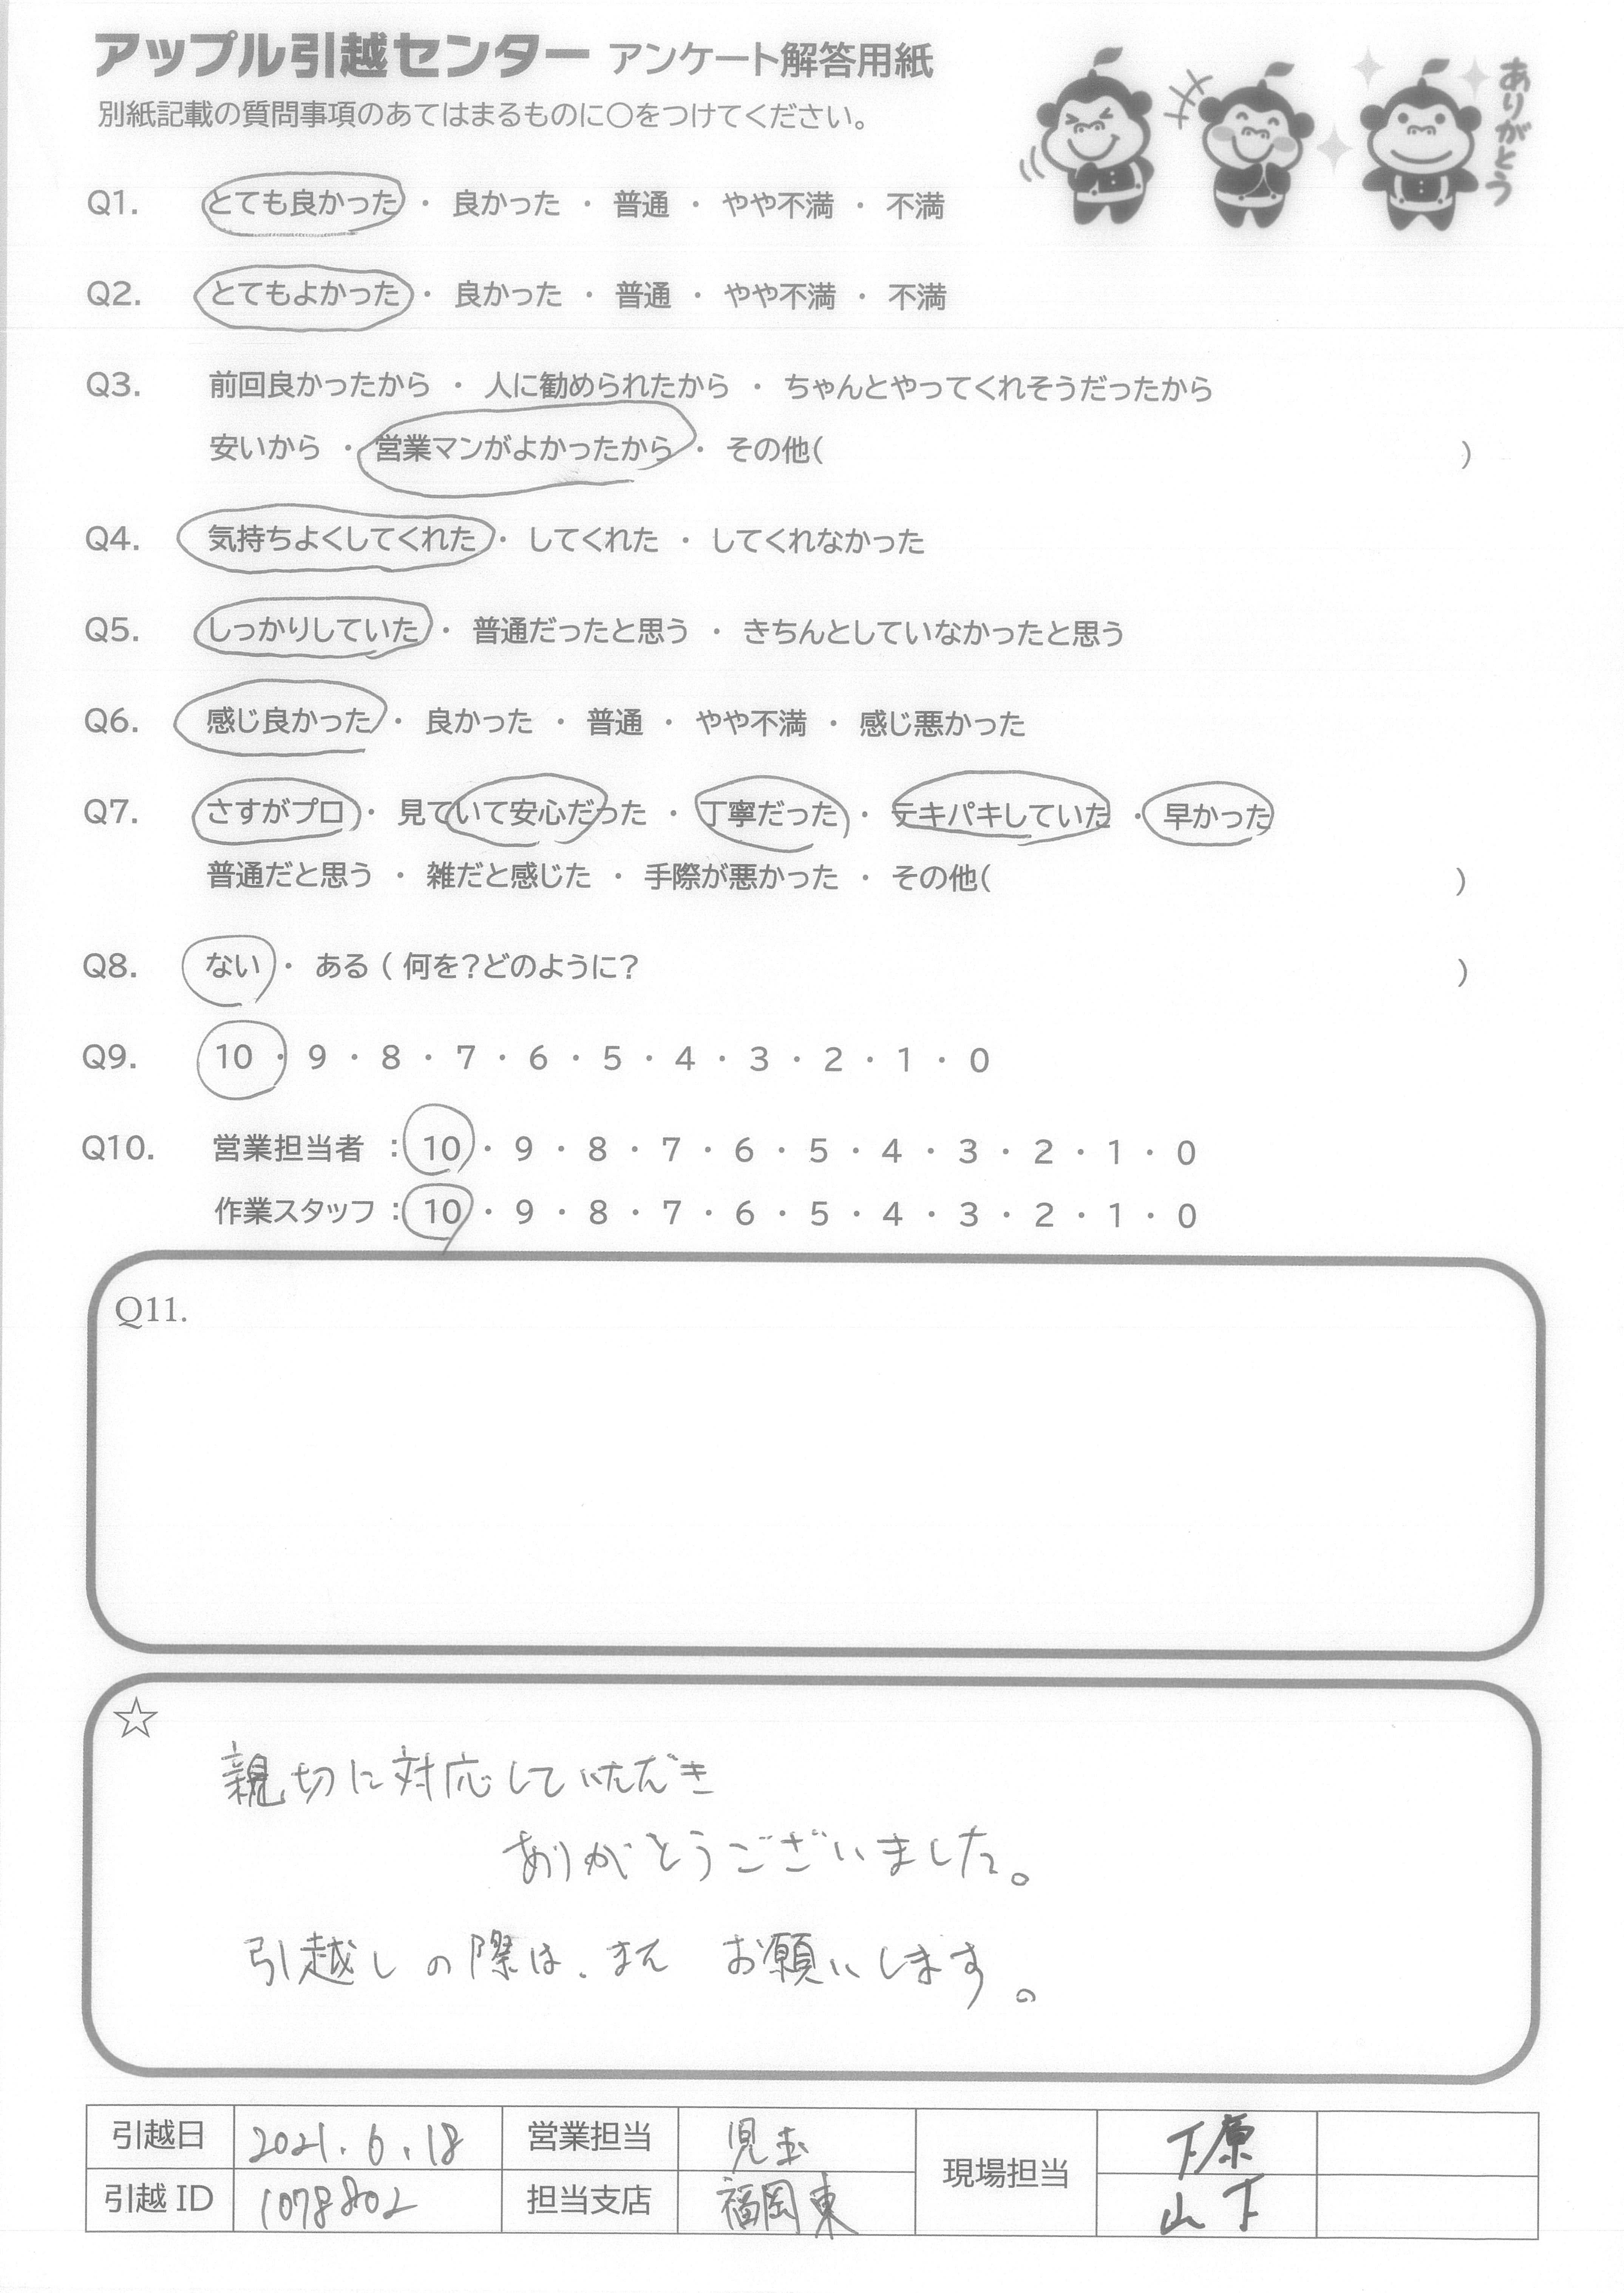 アップル引越センター アンケート解答用紙
別紙記載の質問事項のあてはまるものに〇をつけてください。
ありがとう
Q1. とても良かった ・ 良かった ・ 普通 ・ やや不満 ・ 不満
Q2. とてもよかった ・ 良かった ・ 普通 ・ やや不満 ・ 不満
Q3. 前回良かったから ・ 人に勧められたから ・ ちゃんとやってくれそうだったから
安いから ・ 営業マンがよかったから ・ その他( )
Q4. 気持ちよくしてくれた ・ してくれた ・ してくれなかった
Q5. しっかりしていた ・ 普通だったと思う ・ きちんとしていなかったと思う
Q6. 感じ良かった ・ 良かった ・ 普通 ・ やや不満 ・ 感じ悪かった
Q7. さすがプロ ・ 見ていて安心だった ・ 丁寧だった ・ テキパキしていた ・ 早かった
普通だと思う ・ 雑だと感じた ・ 手際が悪かった ・ その他( )
Q8. ない ・ ある ( 何を?どのように? )
Q9. 10 ・ 9 ・ 8 ・ 7 ・ 6 ・ 5 ・ 4 ・ 3 ・ 2 ・ 1 ・ 0
Q10. 営業担当者 : 10 ・ 9 ・ 8 ・ 7 ・ 6 ・ 5 ・ 4 ・ 3 ・ 2 ・ 1 ・ 0
作業スタッフ : 10 ・ 9 ・ 8 ・ 7 ・ 6 ・ 5 ・ 4 ・ 3 ・ 2 ・ 1 ・ 0
Q11.
☆
親切に対応していただき
ありがとうございました。
引越しの際は、また お願いします。
引越日 2021.6.18 営業担当 児玉 現場担当 下原
引越ID 1078802 担当支店 福岡東 山下